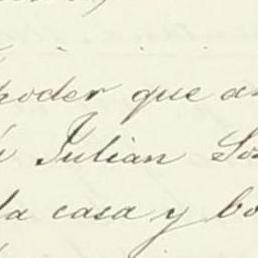 poder que
Julian
la casa y